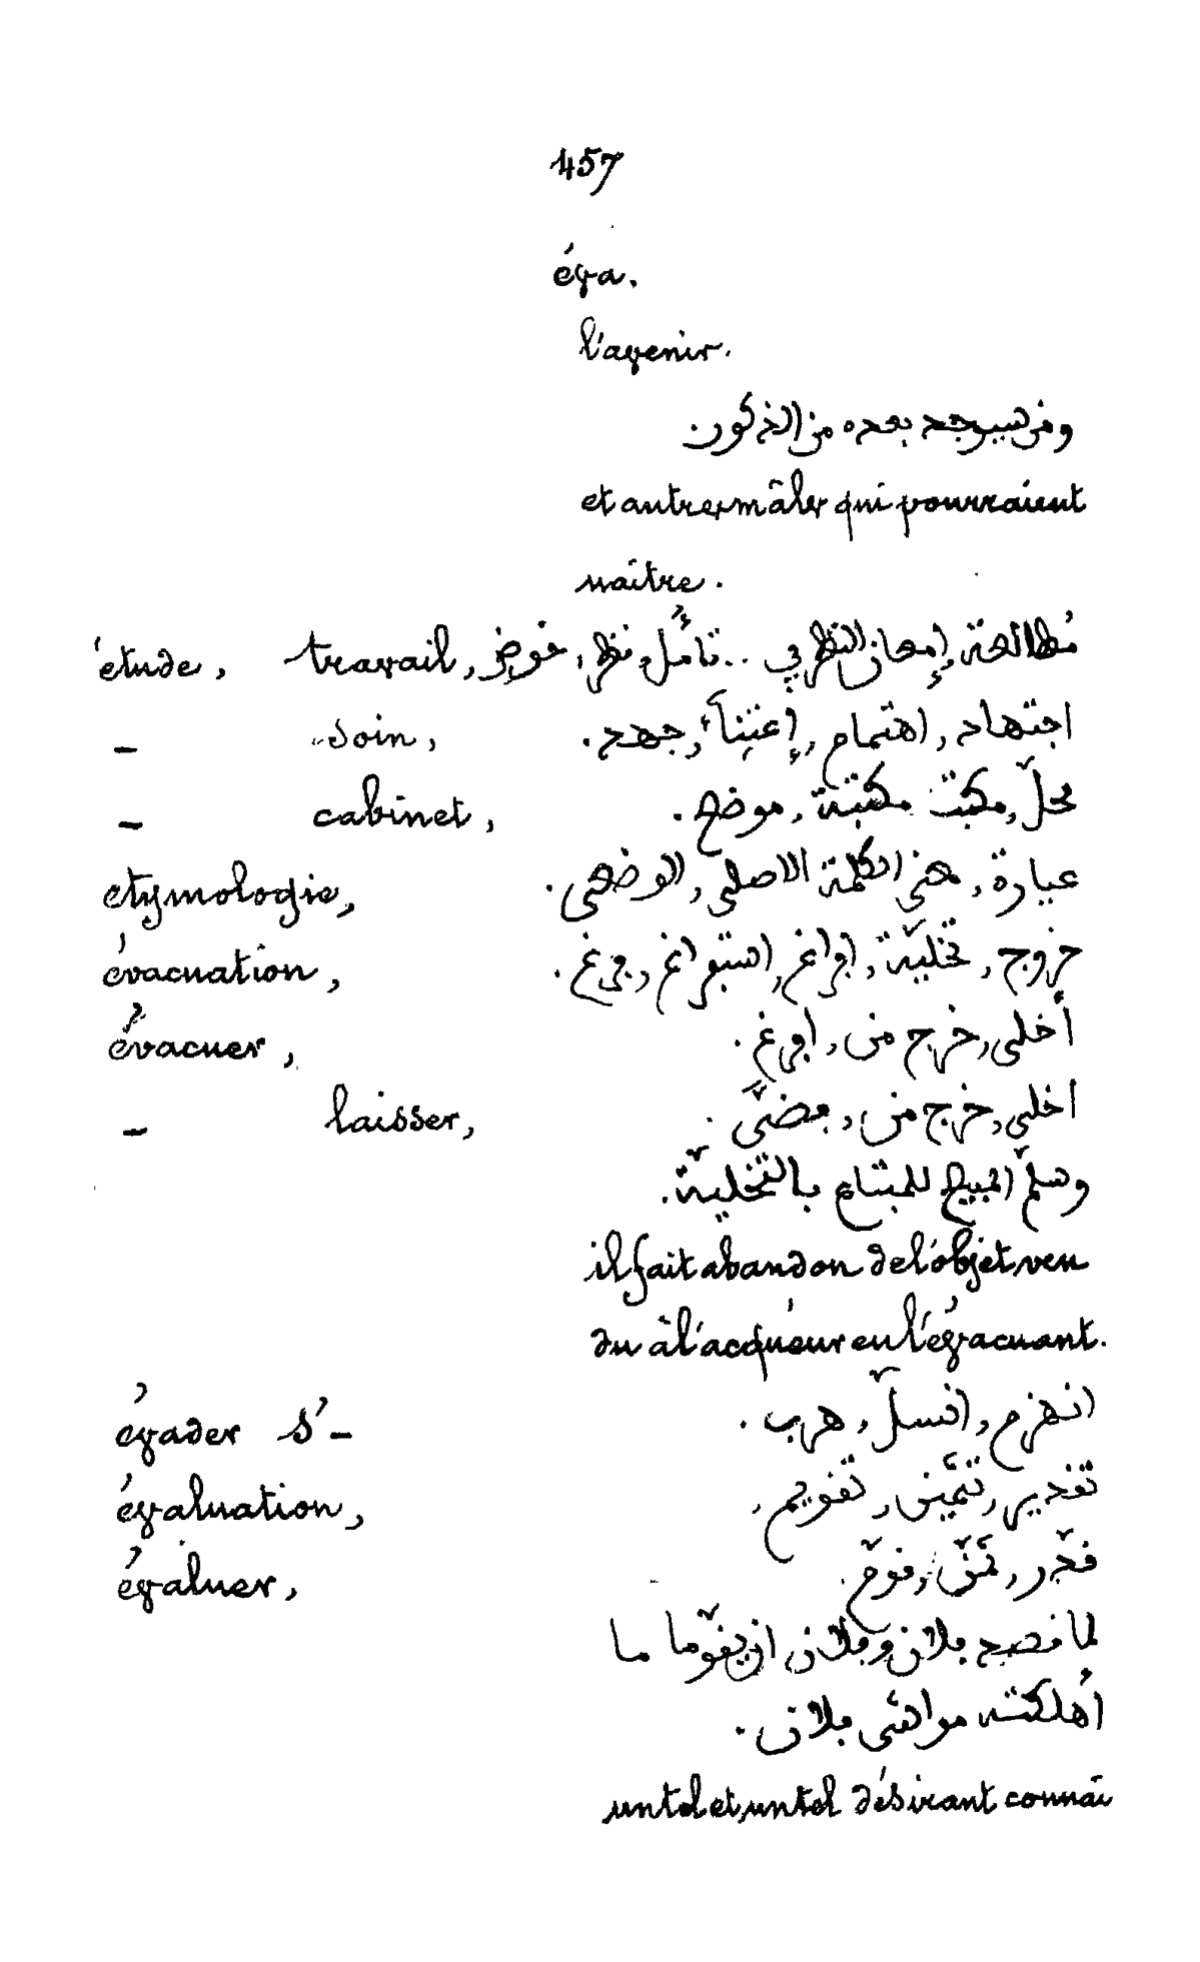 457
éva.
l'avenir.
ومن سيوجد بعده من الذكور.
et autres mâles qui pourraient
naître.
étude, travail, مُطالعة, إمعان النظر في .. تأمُّل, نظر, خوض,
— soin, اجتهاد, اهتمام, إعتِنآء, جهد.
— cabinet, محلّ, مكتب مكتبة, موضع.
etymologie, عبارة, معنى الكلمة الاصلي, الوضعي.
évacuation, خروج, تخليّة, افراغ, استفراغ, فرغ.
évacuer, أخلى, خرج من, افرغ.
— laisser, اخلى, خرج من, فضّى.
وسلّم المبيع للمبتاع بالتخليّة.
il fait abandon de l'objet ven
du à l'acquéur en l'évacuant.
évader s'— انهزم, انسلّ, هرب.
évaluation, تقدير, تثمين, تقويم,
évaluer, قدّر, ثمّن, قوّم.
لما قصد فلان وفلان ان يقوّما ما
أهلكته مواشى فلان.
un tel et un tel désirant connaî